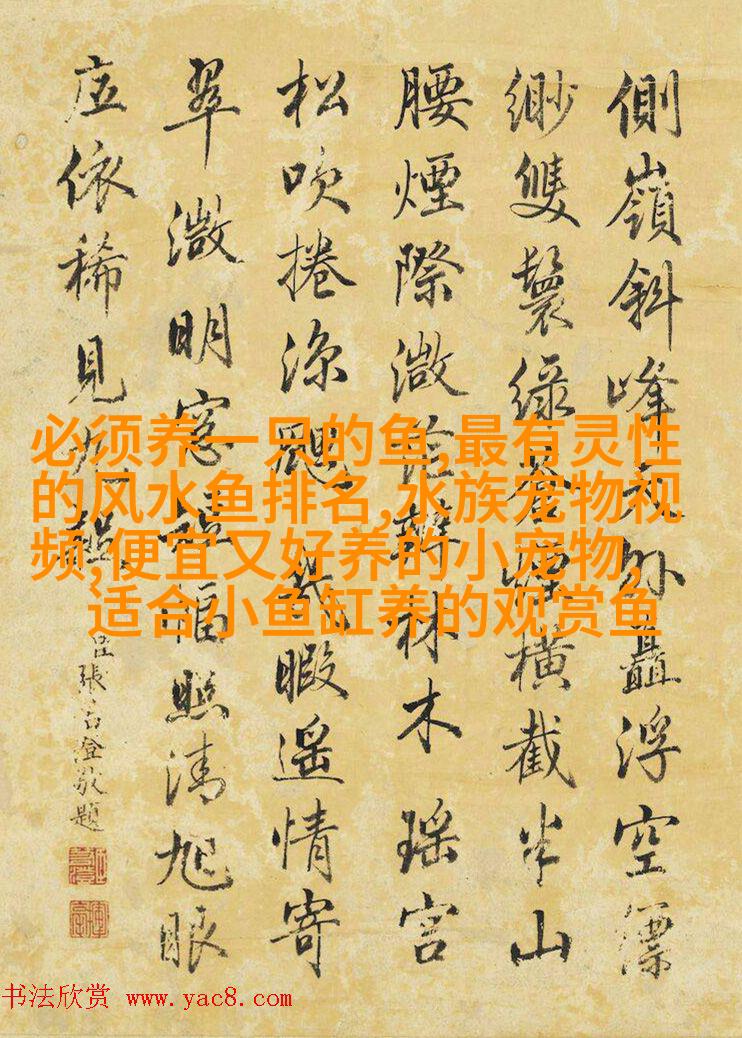 側嶺斜峰天外矗浮空縹
緲雙鬟綠蒼煙橫截半山
腰煙際微茫辨林木瑤宮
松吹捲涼飔幾暇遙情寄
翠微明窓幅照清旭眼
底依稀見
臣張若澄敬題
必须养一只的鱼,最有灵性
的风水鱼排名,水族宠物视
频,便宜又好养的小宠物,
适合小鱼缸养的观赏鱼
书法欣赏 www.yac8.com